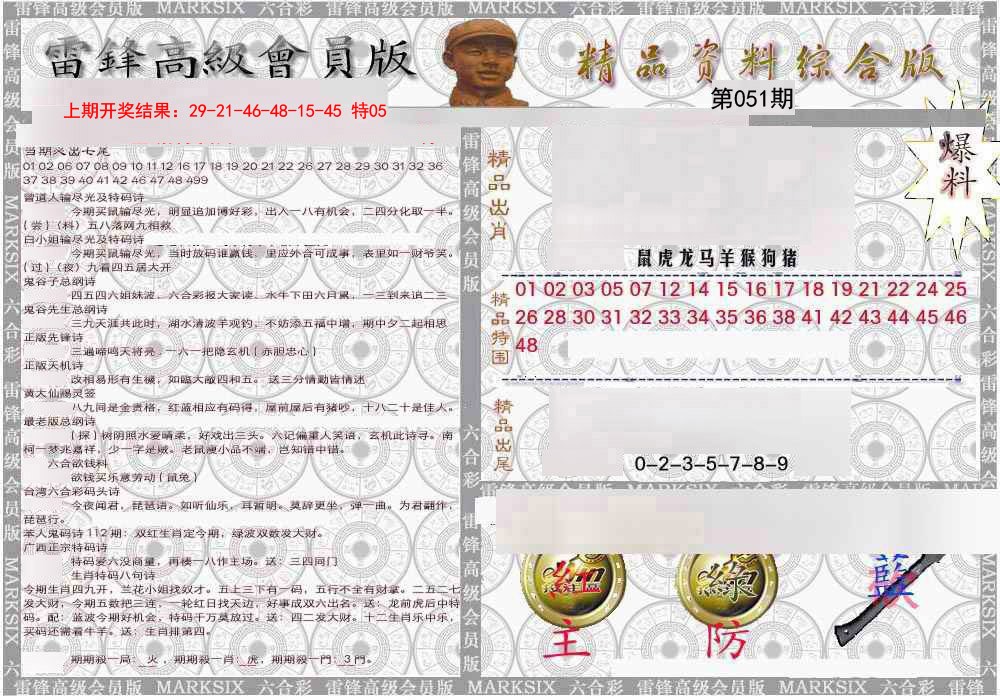 雷锋高级会员版 MARKSIX 六合彩 雷锋高级会员版 MARKSIX 六合彩 雷锋高级会员版 MARKSIX 六合彩 雷锋
雷鋒高級會員版
精品资料综合版
第051期
上期开奖结果：29-21-46-48-15-45 特05
爆料
01 02 06 07 08 09 10 11 12 16 17 18 19 20 21 22 26 27 28 29 30 31 32 36
37 38 39 40 41 42 46 47 48 499
曾道人输尽光及特码诗
今期买鼠输尽光，明显追加博好彩，出入一八有机会，二四分化取一半。
{尝}（料）五八落网九相救
白小姐输尽光及特码诗
今期买鼠输尽光，当时放码谁赢钱，里应外合可成事，表里如一财爷笑。
{过}（夜）九看四五居大开
鬼谷子总纲诗
四五四六姐妹波，六合彩报大家读，水牛下田六月累，一三到来追二三
鬼谷先生总纲诗
三九天涯共此时，湖水清波羊观钓，不妨添五福中增，期中夕二起相思
正版先锋诗
三遍啼鸣天将亮，一六一把隐玄机{赤胆忠心}
正版天机诗
改相易形有生機，如臨大敵四和五。送三分情勤皆情述
黄大仙赐灵签
八九同是金贵格，红蓝相应有码得，屋前屋后有猪吵，十八二十是佳人。
最老版总纲诗
{探}树阴照水爱晴柔，好戏出三头。六记偏重人笑语，玄机此诗寻。南
柯一梦兆嘉祥，少一字是贼。老鼠瘦小品不端，岂知错中错。
六合欲钱料
欲钱买乐意劳动{鼠兔}
台湾六合彩码头诗
今夜闻君，琵琶语。如听仙乐，耳暂明。莫辞更坐，弹一曲。为君翻作，
琵琶行。
本人鬼码诗112期：双红生肖定今期，绿波双数发大财。
广西正宗特码诗
特码爱六没商量，再楼一八作主场。送：三四同门
生肖特码八句诗
今期生肖四九开，兰花小姐找奴才。五上三下有一码，五行不全有财掌。二五二七
发大财，今期五数把三连，一轮红日找天边，好事成双六出名。送：龙前虎后中特
码。配：蓝波今期好机会，特码千万莫放过。送：四二发大财。十二生肖乐中乐，
买码还需看牛羊。送：生肖排第四。
期期殺一局：火，期期殺一肖：虎，期期殺一門：3門。
精品出肖
鼠虎龙马羊猴狗猪
精品特围
01 02 03 05 07 12 14 15 16 17 18 19 21 22 24 25
26 28 30 31 32 33 34 35 36 38 41 42 43 44 45 46
48
精品出尾
0-2-3-5-7-8-9
紅
綠
藍
主
防
雷锋高级会员版 MARKSIX 六合彩 雷锋高级会员版 MARKSIX 六合彩 雷锋高级会员版 MARKSIX 六合彩 雷锋